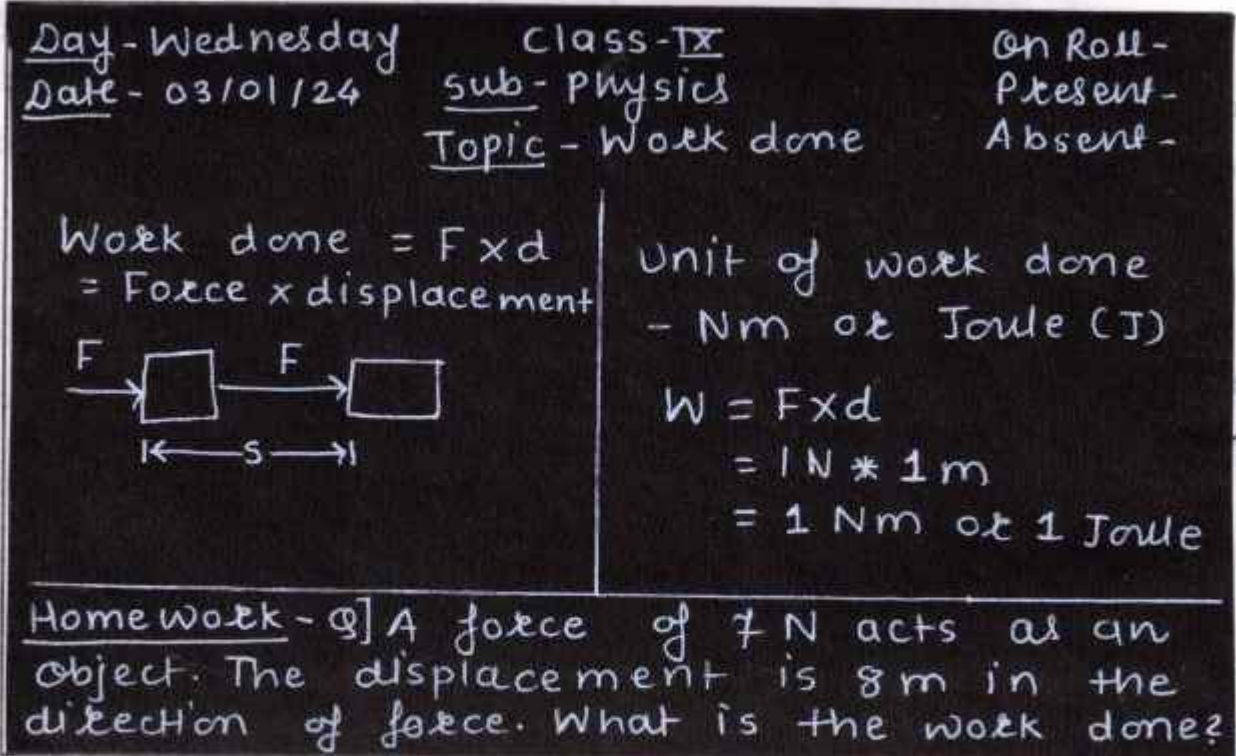 Day - Wednesday
Class - IX
On Roll -
Date - 03/01/24
Sub - Physics
Present -
Topic - Work done
Absent -
Work done = F x d
= Force x displacement
F F
S
Unit of work done
- Nm or Joule (J)
W = F x d
= 1 N * 1 m
= 1 Nm or 1 Joule
Home Work - Q] A force of 7 N acts as an
object. The displacement is 8 m in the
direction of force. What is the work done?